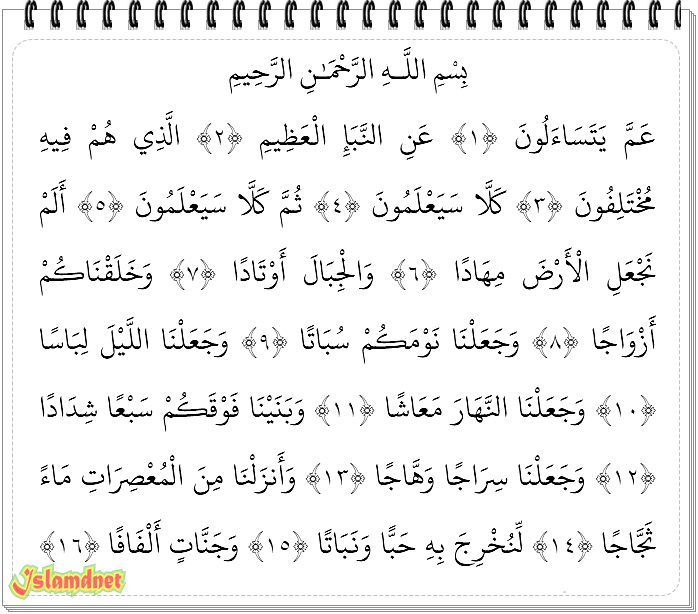 بِسْمِ اللَّـهِ الرَّحْمَـٰنِ الرَّحِيمِ
عَمَّ يَتَسَاءَلُونَ ﴿١﴾ عَنِ النَّبَإِ الْعَظِيمِ ﴿٢﴾ الَّذِي هُمْ فِيهِ
مُخْتَلِفُونَ ﴿٣﴾ كَلَّا سَيَعْلَمُونَ ﴿٤﴾ ثُمَّ كَلَّا سَيَعْلَمُونَ ﴿٥﴾ أَلَمْ
نَجْعَلِ الْأَرْضَ مِهَادًا ﴿٦﴾ وَالْجِبَالَ أَوْتَادًا ﴿٧﴾ وَخَلَقْنَاكُمْ
أَزْوَاجًا ﴿٨﴾ وَجَعَلْنَا نَوْمَكُمْ سُبَاتًا ﴿٩﴾ وَجَعَلْنَا اللَّيْلَ لِبَاسًا
﴿١٠﴾ وَجَعَلْنَا النَّهَارَ مَعَاشًا ﴿١١﴾ وَبَنَيْنَا فَوْقَكُمْ سَبْعًا شِدَادًا
﴿١٢﴾ وَجَعَلْنَا سِرَاجًا وَهَّاجًا ﴿١٣﴾ وَأَنزَلْنَا مِنَ الْمُعْصِرَاتِ مَاءً
ثَجَّاجًا ﴿١٤﴾ لِّنُخْرِجَ بِهِ حَبًّا وَنَبَاتًا ﴿١٥﴾ وَجَنَّاتٍ أَلْفَافًا ﴿١٦﴾
Islamdnet